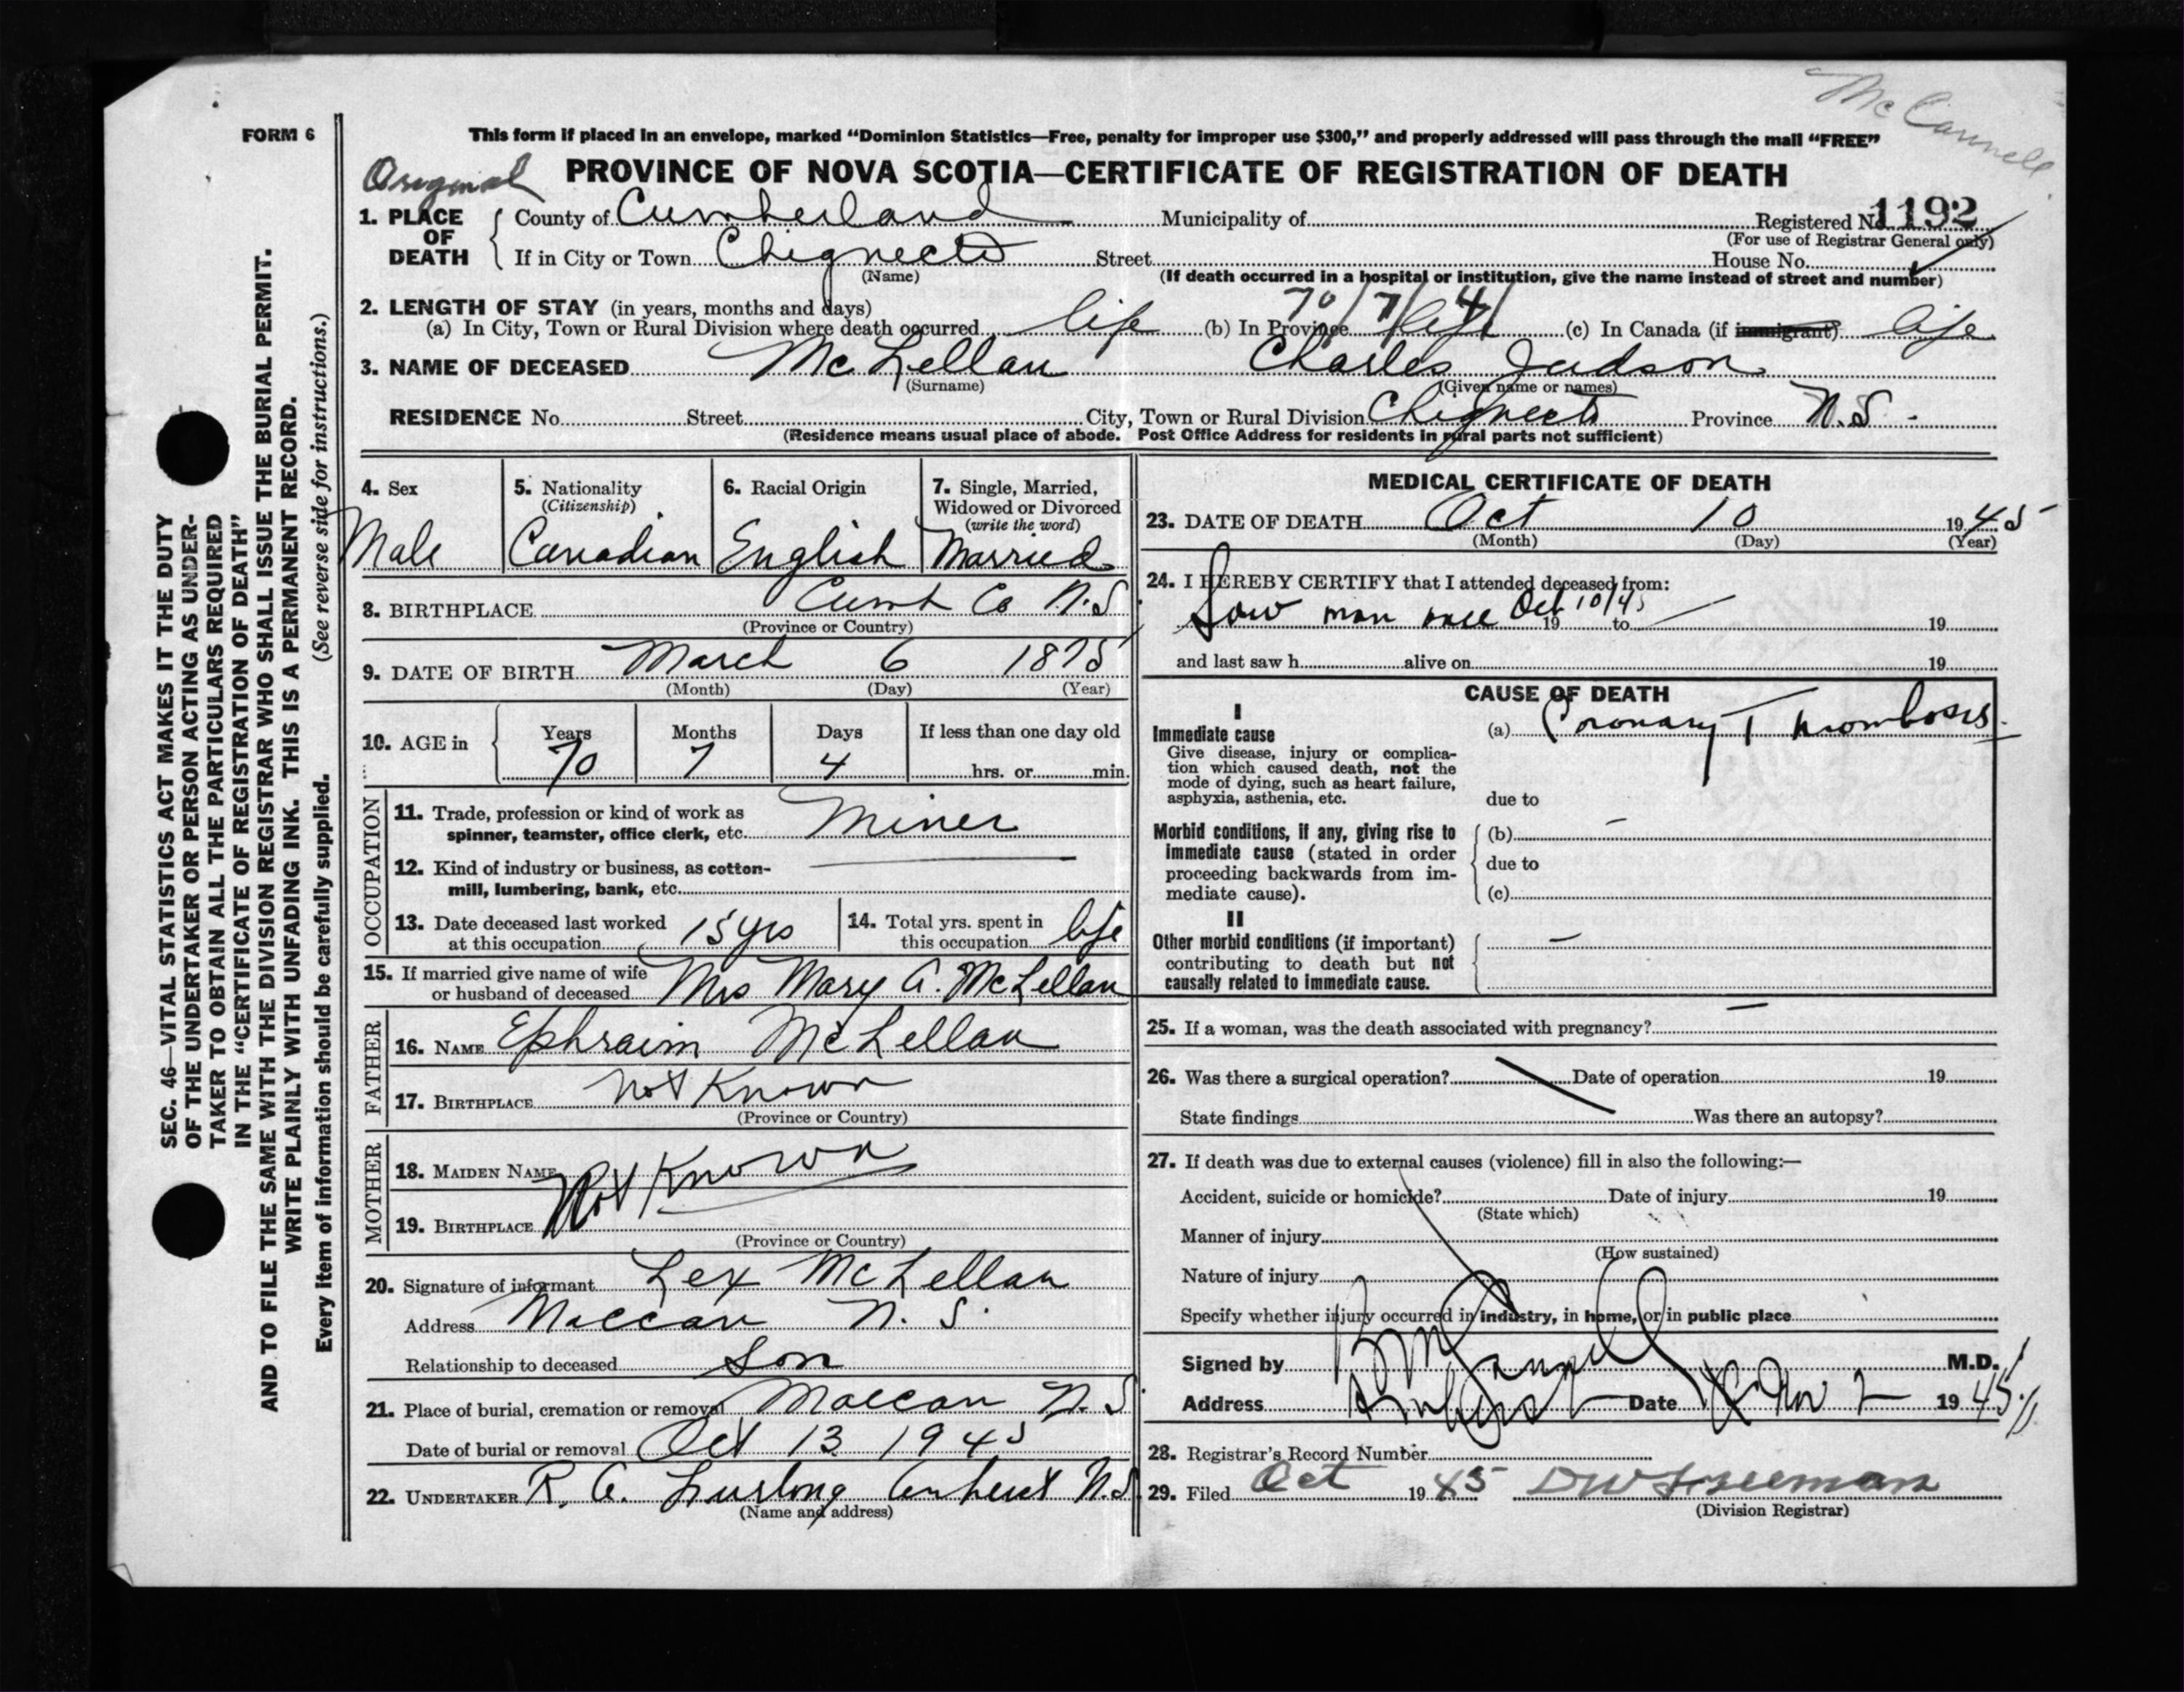 Mc Cannell
FORM 6
This form if placed in an envelope, marked “Dominion Statistics—Free, penalty for improper use $300,” and properly addressed will pass through the mail “FREE”
Original PROVINCE OF NOVA SCOTIA—CERTIFICATE OF REGISTRATION OF DEATH
1. PLACE OF DEATH County of Cumberland Municipality of Registered No. 1192
(For use of Registrar General only)
If in City or Town Chignecto Street House No.
(Name) (If death occurred in a hospital or institution, give the name instead of street and number)
2. LENGTH OF STAY (in years, months and days) 70/7/4/
(a) In City, Town or Rural Division where death occurred life (b) In Province life (c) In Canada (if immigrant) life
3. NAME OF DECEASED McLellan Charles Judson
(Surname) (Given name or names)
RESIDENCE No. Street City, Town or Rural Division Chignecto Province N.S.
(Residence means usual place of abode. Post Office Address for residents in rural parts not sufficient)
4. Sex 5. Nationality (Citizenship) 6. Racial Origin 7. Single, Married, Widowed or Divorced (write the word)
Male Canadian English Married
8. BIRTHPLACE Cumb Co N.S
(Province or Country)
9. DATE OF BIRTH March 6 1875
(Month) (Day) (Year)
10. AGE in Years Months Days If less than one day old
70 7 4 hrs. or min.
OCCUPATION
11. Trade, profession or kind of work as
spinner, teamster, office clerk, etc. Miner
12. Kind of industry or business, as cotton-
mill, lumbering, bank, etc.
13. Date deceased last worked
at this occupation 15 yrs
14. Total yrs. spent in
this occupation life
15. If married give name of wife
or husband of deceased Mrs Mary A. McLellan
FATHER
16. NAME Ephraim McLellan
17. BIRTHPLACE not Known
(Province or Country)
MOTHER
18. MAIDEN NAME Not Known
19. BIRTHPLACE
(Province or Country)
20. Signature of informant Lex McLellan
Address Maccan N. S.
Relationship to deceased Son
21. Place of burial, cremation or removal Maccan N. S
Date of burial or removal Oct 13 1945
22. UNDERTAKER R. A. Furlong Amherst N.S
(Name and address)
MEDICAL CERTIFICATE OF DEATH
23. DATE OF DEATH Oct 10 1945
(Month) (Day) (Year)
24. I HEREBY CERTIFY that I attended deceased from:
Saw man once Oct 10/45 19 to 19
and last saw h alive on 19
CAUSE OF DEATH
I
Immediate cause (a) Coronary Thrombosis
Give disease, injury or complica-
tion which caused death, not the
mode of dying, such as heart failure,
asphyxia, asthenia, etc. due to
Morbid conditions, if any, giving rise to (b) –
immediate cause (stated in order due to
proceeding backwards from im-
mediate cause). (c)
II
Other morbid conditions (if important) –
contributing to death but not
causally related to immediate cause.
25. If a woman, was the death associated with pregnancy? –
26. Was there a surgical operation? Date of operation 19
State findings Was there an autopsy?
27. If death was due to external causes (violence) fill in also the following:—
Accident, suicide or homicide? Date of injury 19
(State which)
Manner of injury
(How sustained)
Nature of injury
Specify whether injury occurred in industry, in home, or in public place
Signed by M.D.
Address Amherst Date Nov 2 1945
28. Registrar's Record Number
29. Filed Oct 1945 DW Freeman
(Division Registrar)
SEC. 46—VITAL STATISTICS ACT MAKES IT THE DUTY
OF THE UNDERTAKER OR PERSON ACTING AS UNDER-
TAKER TO OBTAIN ALL THE PARTICULARS REQUIRED
IN THE “CERTIFICATE OF REGISTRATION OF DEATH”
AND TO FILE THE SAME WITH THE DIVISION REGISTRAR WHO SHALL ISSUE THE BURIAL PERMIT.
WRITE PLAINLY WITH UNFADING INK. THIS IS A PERMANENT RECORD.
Every item of information should be carefully supplied. (See reverse side for instructions.)